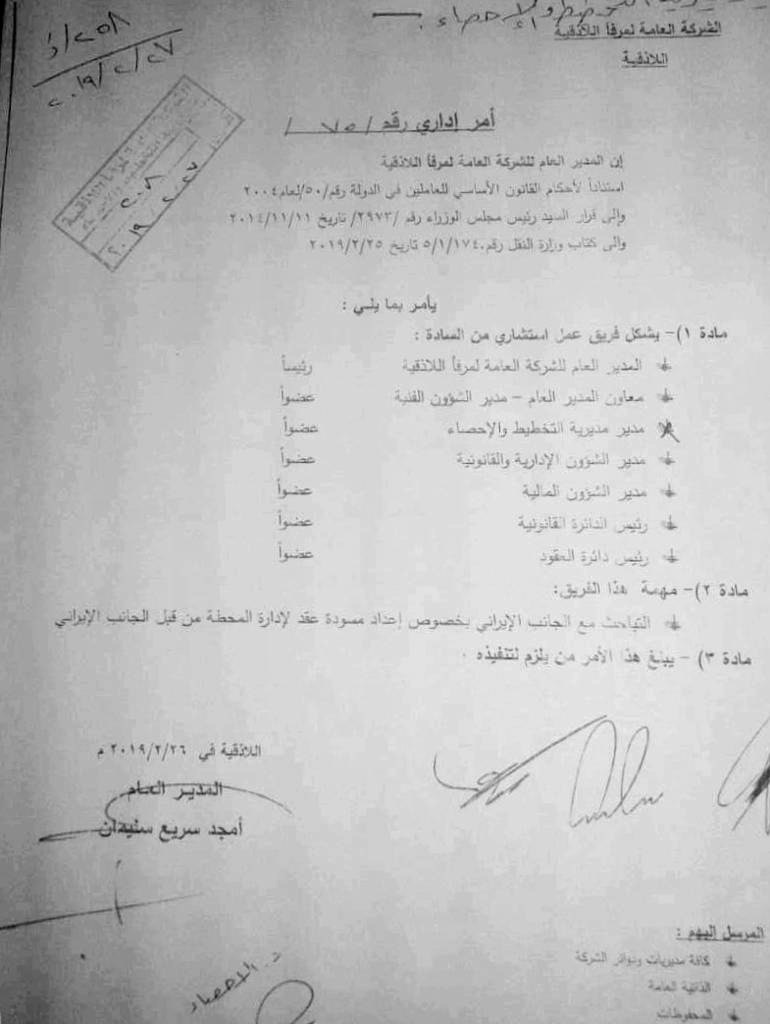 التخطيط والإحصاء
الشركة العامة لمرفأ اللاذقية
اللاذقية
٢٥٨/ذ
٢٠١٩/٢/٢٧
٢٠١٩
أمر إداري رقم /٧٥/
إن المدير العام للشركة العامة لمرفأ اللاذقية
استناداً لأحكام القانون الأساسي للعاملين في الدولة رقم/٥٠/لعام٢٠٠٤
وإلى قرار السيد رئيس مجلس الوزراء رقم /٢٩٧٣/ تاريخ ٢٠١٤/١١/١١
والى كتاب وزارة النقل رقم٥/١/١٧٤٠ تاريخ ٢٠١٩/٢/٢٥
يأمر بما يلي :
مادة ١)- يشكل فريق عمل استشاري من السادة :
المدير العام للشركة العامة لمرفأ اللاذقية رئيساً
معاون المدير العام – مدير الشؤون الفنية عضواً
مدير مديرية التخطيط والإحصاء عضواً
مدير الشؤون الإدارية والقانونية عضواً
مدير الشؤون المالية عضواً
رئيس الدائرة القانونية عضواً
رئيس دائرة العقود عضواً
مادة ٢)- مهمة هذا الفريق:
التباحث مع الجانب الإيراني بخصوص إعداد مسودة عقد لإدارة المحطة من قبل الجانب الإيراني
مادة ٣) – يبلغ هذا الأمر من يلزم لتنفيذه .
اللاذقية في ٢٠١٩/٢/٢٦ م
المدير العام
أمجد سريع سليمان
المرسل إليهم :
كافة مديريات ودوائر الشركة
الذاتية العامة
المحفوظات
د. الاحصاء